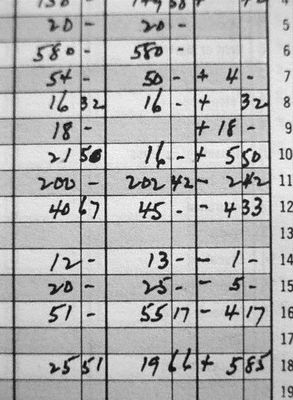 20 - 20 - 5
580 - 580 - 6
54 - 50 - + 4 - 7
16 32 16 - + 32 8
18 - + 18 - 9
21 50 16 - + 5 50 10
200 - 202 42 - 2 42 11
40 67 45 - - 4 33 12
13
12 - 13 - - 1 - 14
20 - 25 - - 5 - 15
51 - 55 17 - 4 17 16
17
25 51 19 66 + 5 85 18
19